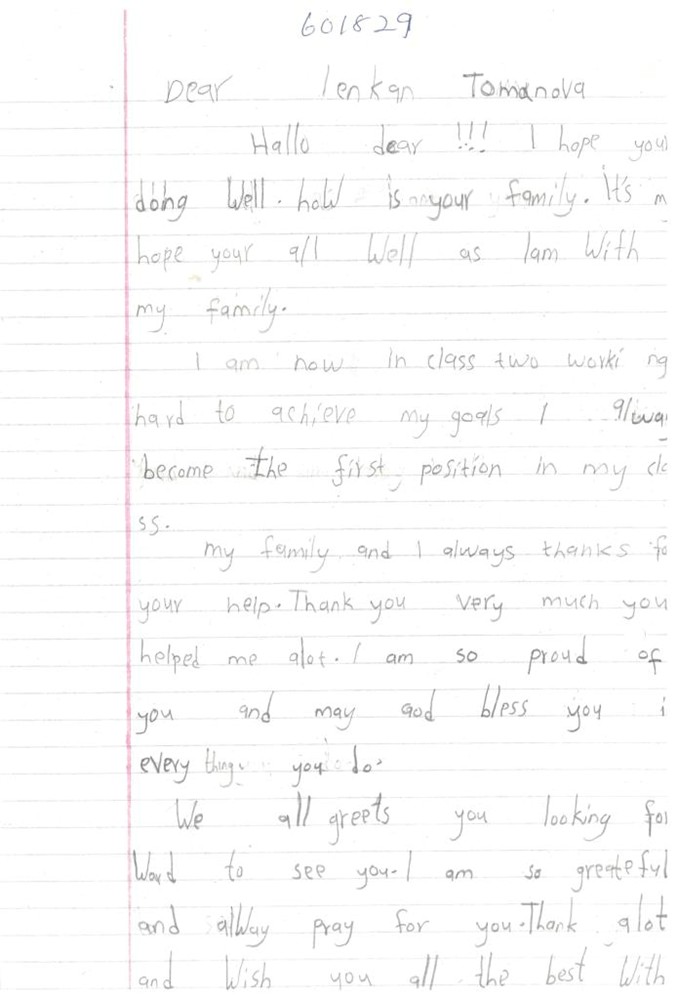 601829
Dear lenkan Tomanova
Hallo dear !!! I hope your
doing Well. how is your family. It's m
hope your all Well as Iam With
my family.
I am now in class two worki ng
hard to achieve my goals I alway
become the first position in my cla
ss.
my family and I always thanks fo
your help. Thank you very much you
helped me alot. I am so proud of
you and may God bless you i
every thing you do.
We all greets you looking for
Ward to see you. I am so greateful
and allWay pray for you. Thank alot
and Wish you all the best With